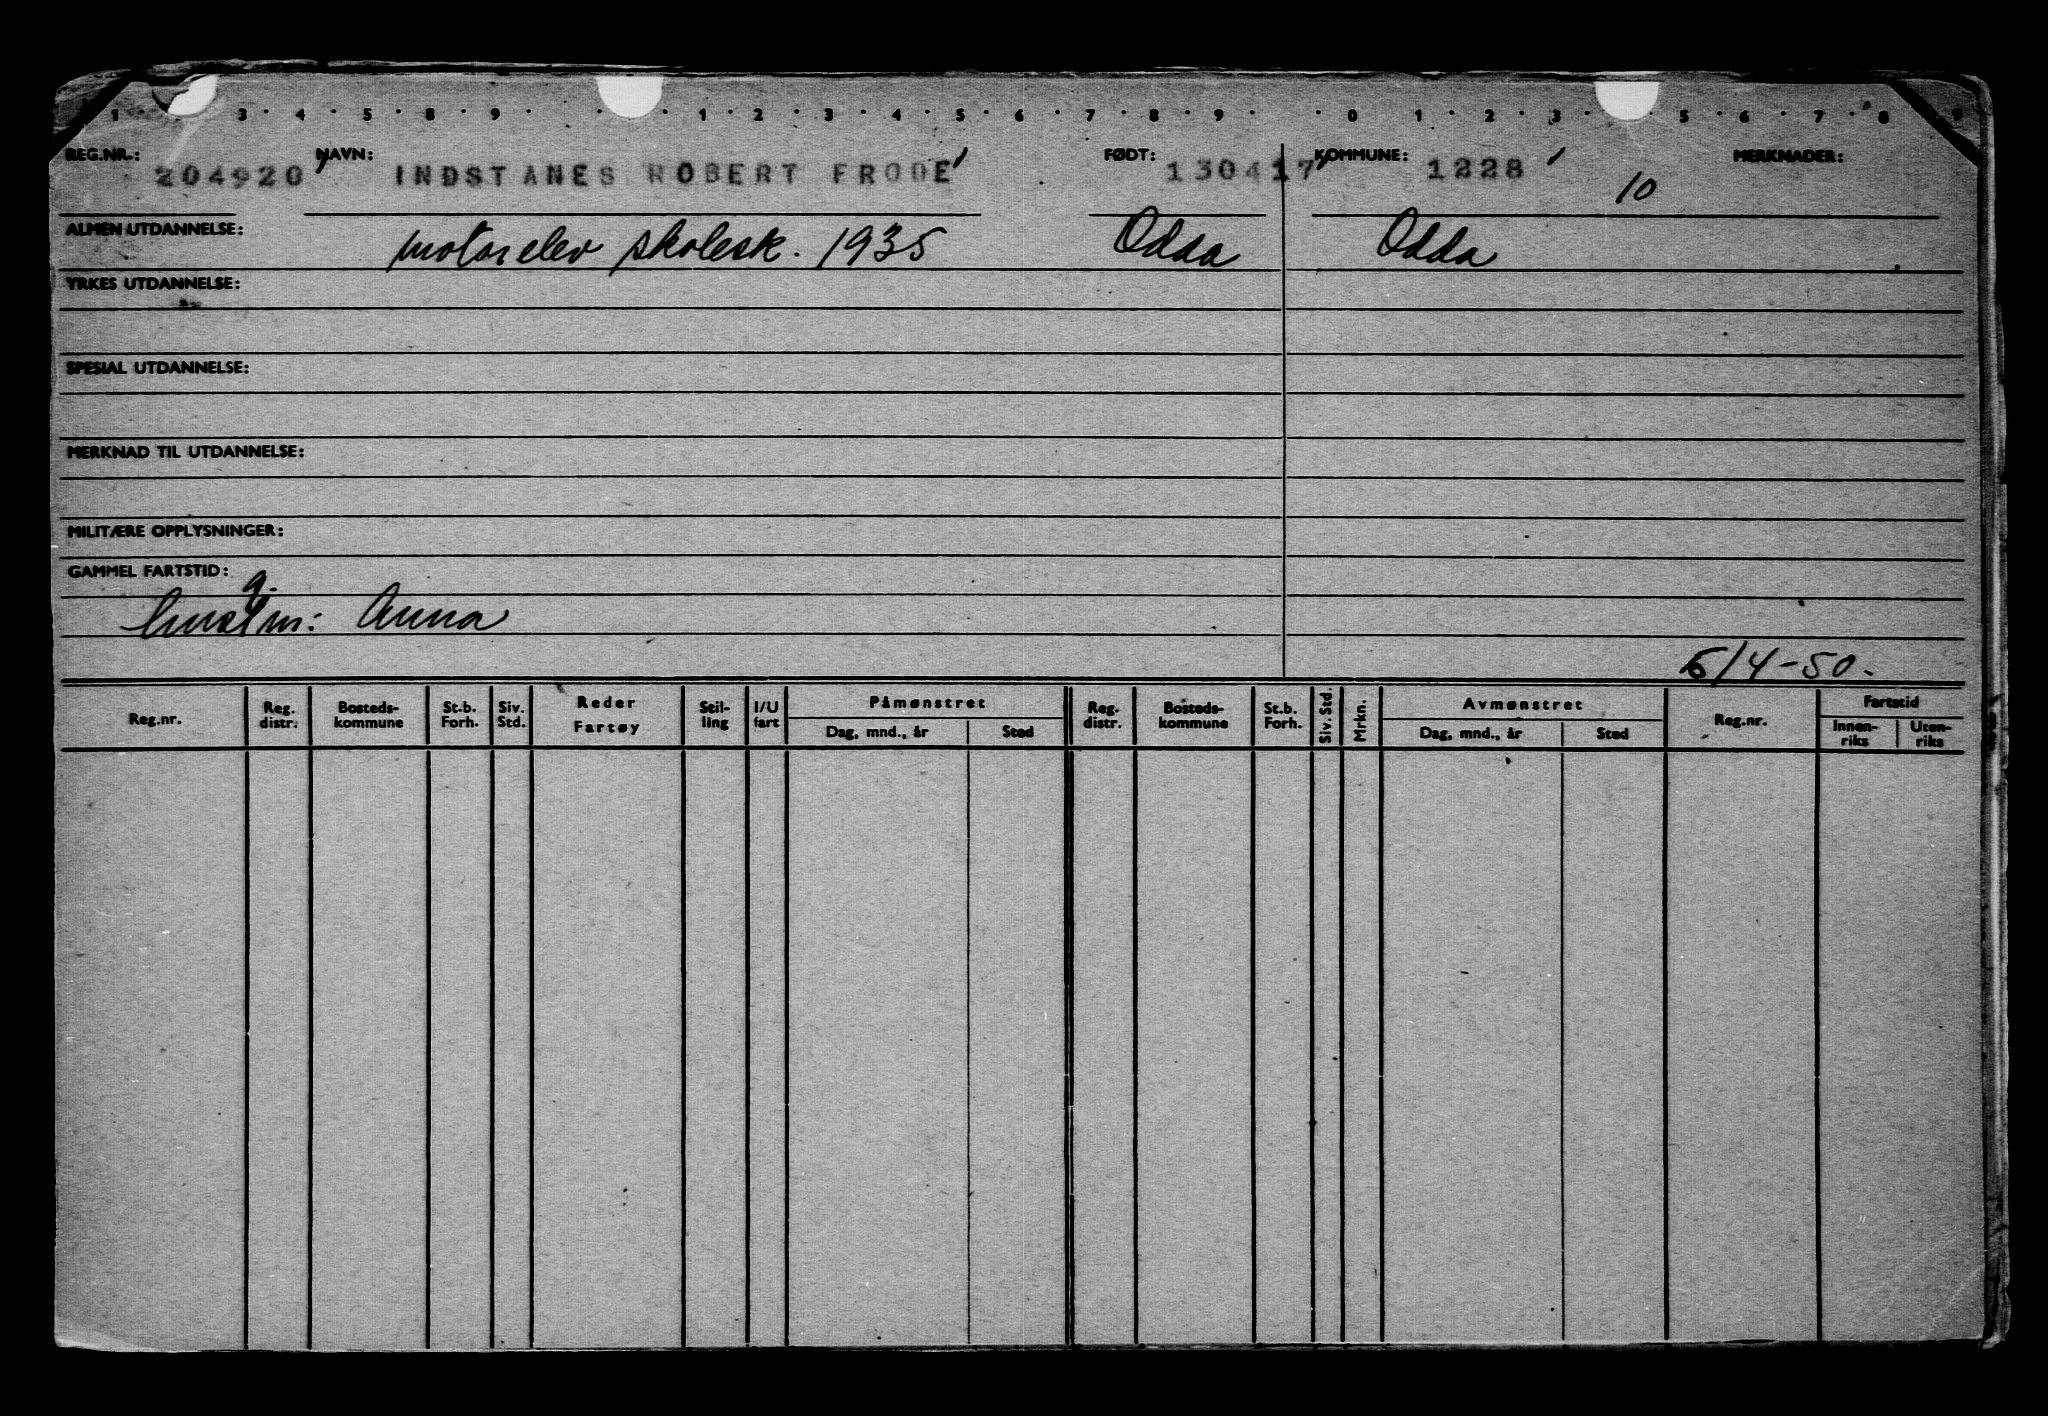 1 3 · 4 · 5 · 8 · 9 · · · 1 · 2 · 3 · 4 · 5 · 6 · 7 · 8 · 9 · · 0 · 1 · 2 · 3 · · 5 · 6 · 7 · 8 · 9
REG.NR.: NAVN: FØDT: KOMMUNE: MERKNADER:
204920 INDSTANES ROBERT FRODE 130417 1228
10
ALMEN UTDANNELSE: motorelev skolesk. 1935 Odda Odda
YRKES UTDANNELSE:
SPESIAL UTDANNELSE:
MERKNAD TIL UTDANNELSE:
MILITÆRE OPPLYSNINGER:
GAMMEL FARTSTID:
g.
m: Anna
5/4-50.
Reg.nr. Reg. distr. Bosteds-kommune St.b. Forh. Siv. Std. Reder Fartøy Stil-ling I/U fart Påmønstret Dag, mnd., år Sted Reg. distr. Bosteds-kommune St.b. Forh. Siv. Std. Mrkn. Avmønstret Dag, mnd., år Sted Reg.nr. Fartstid Innen-riks Uten-riks